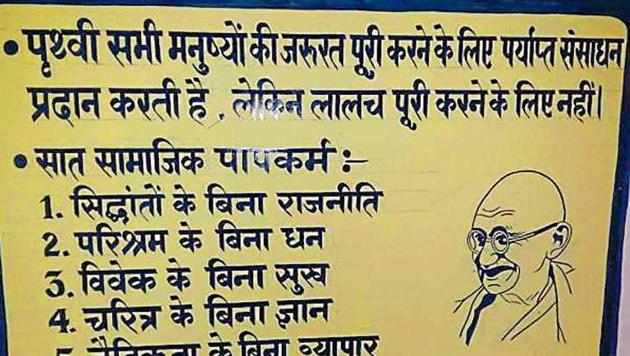 • पृथ्वी सभी मनुष्यों की जरूरत पूरी करने के लिए पर्याप्त संसाधन
प्रदान करती है , लेकिन लालच पूरी करने के लिए नहीं।
• सात सामाजिक पापकर्म :–
1. सिद्धांतों के बिना राजनीति
2. परिश्रम के बिना धन
3. विवेक के बिना सुख
4. चरित्र के बिना ज्ञान
5. नैतिकता के बिना व्यापार